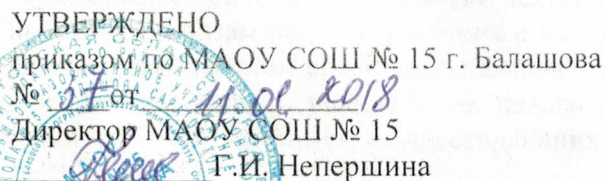 УТВЕРЖДЕНО
приказом по МАОУ СОШ № 15 г. Балашова
№ 37 от 2018
Директор МАОУ СОШ № 15
Г.И. Непершина